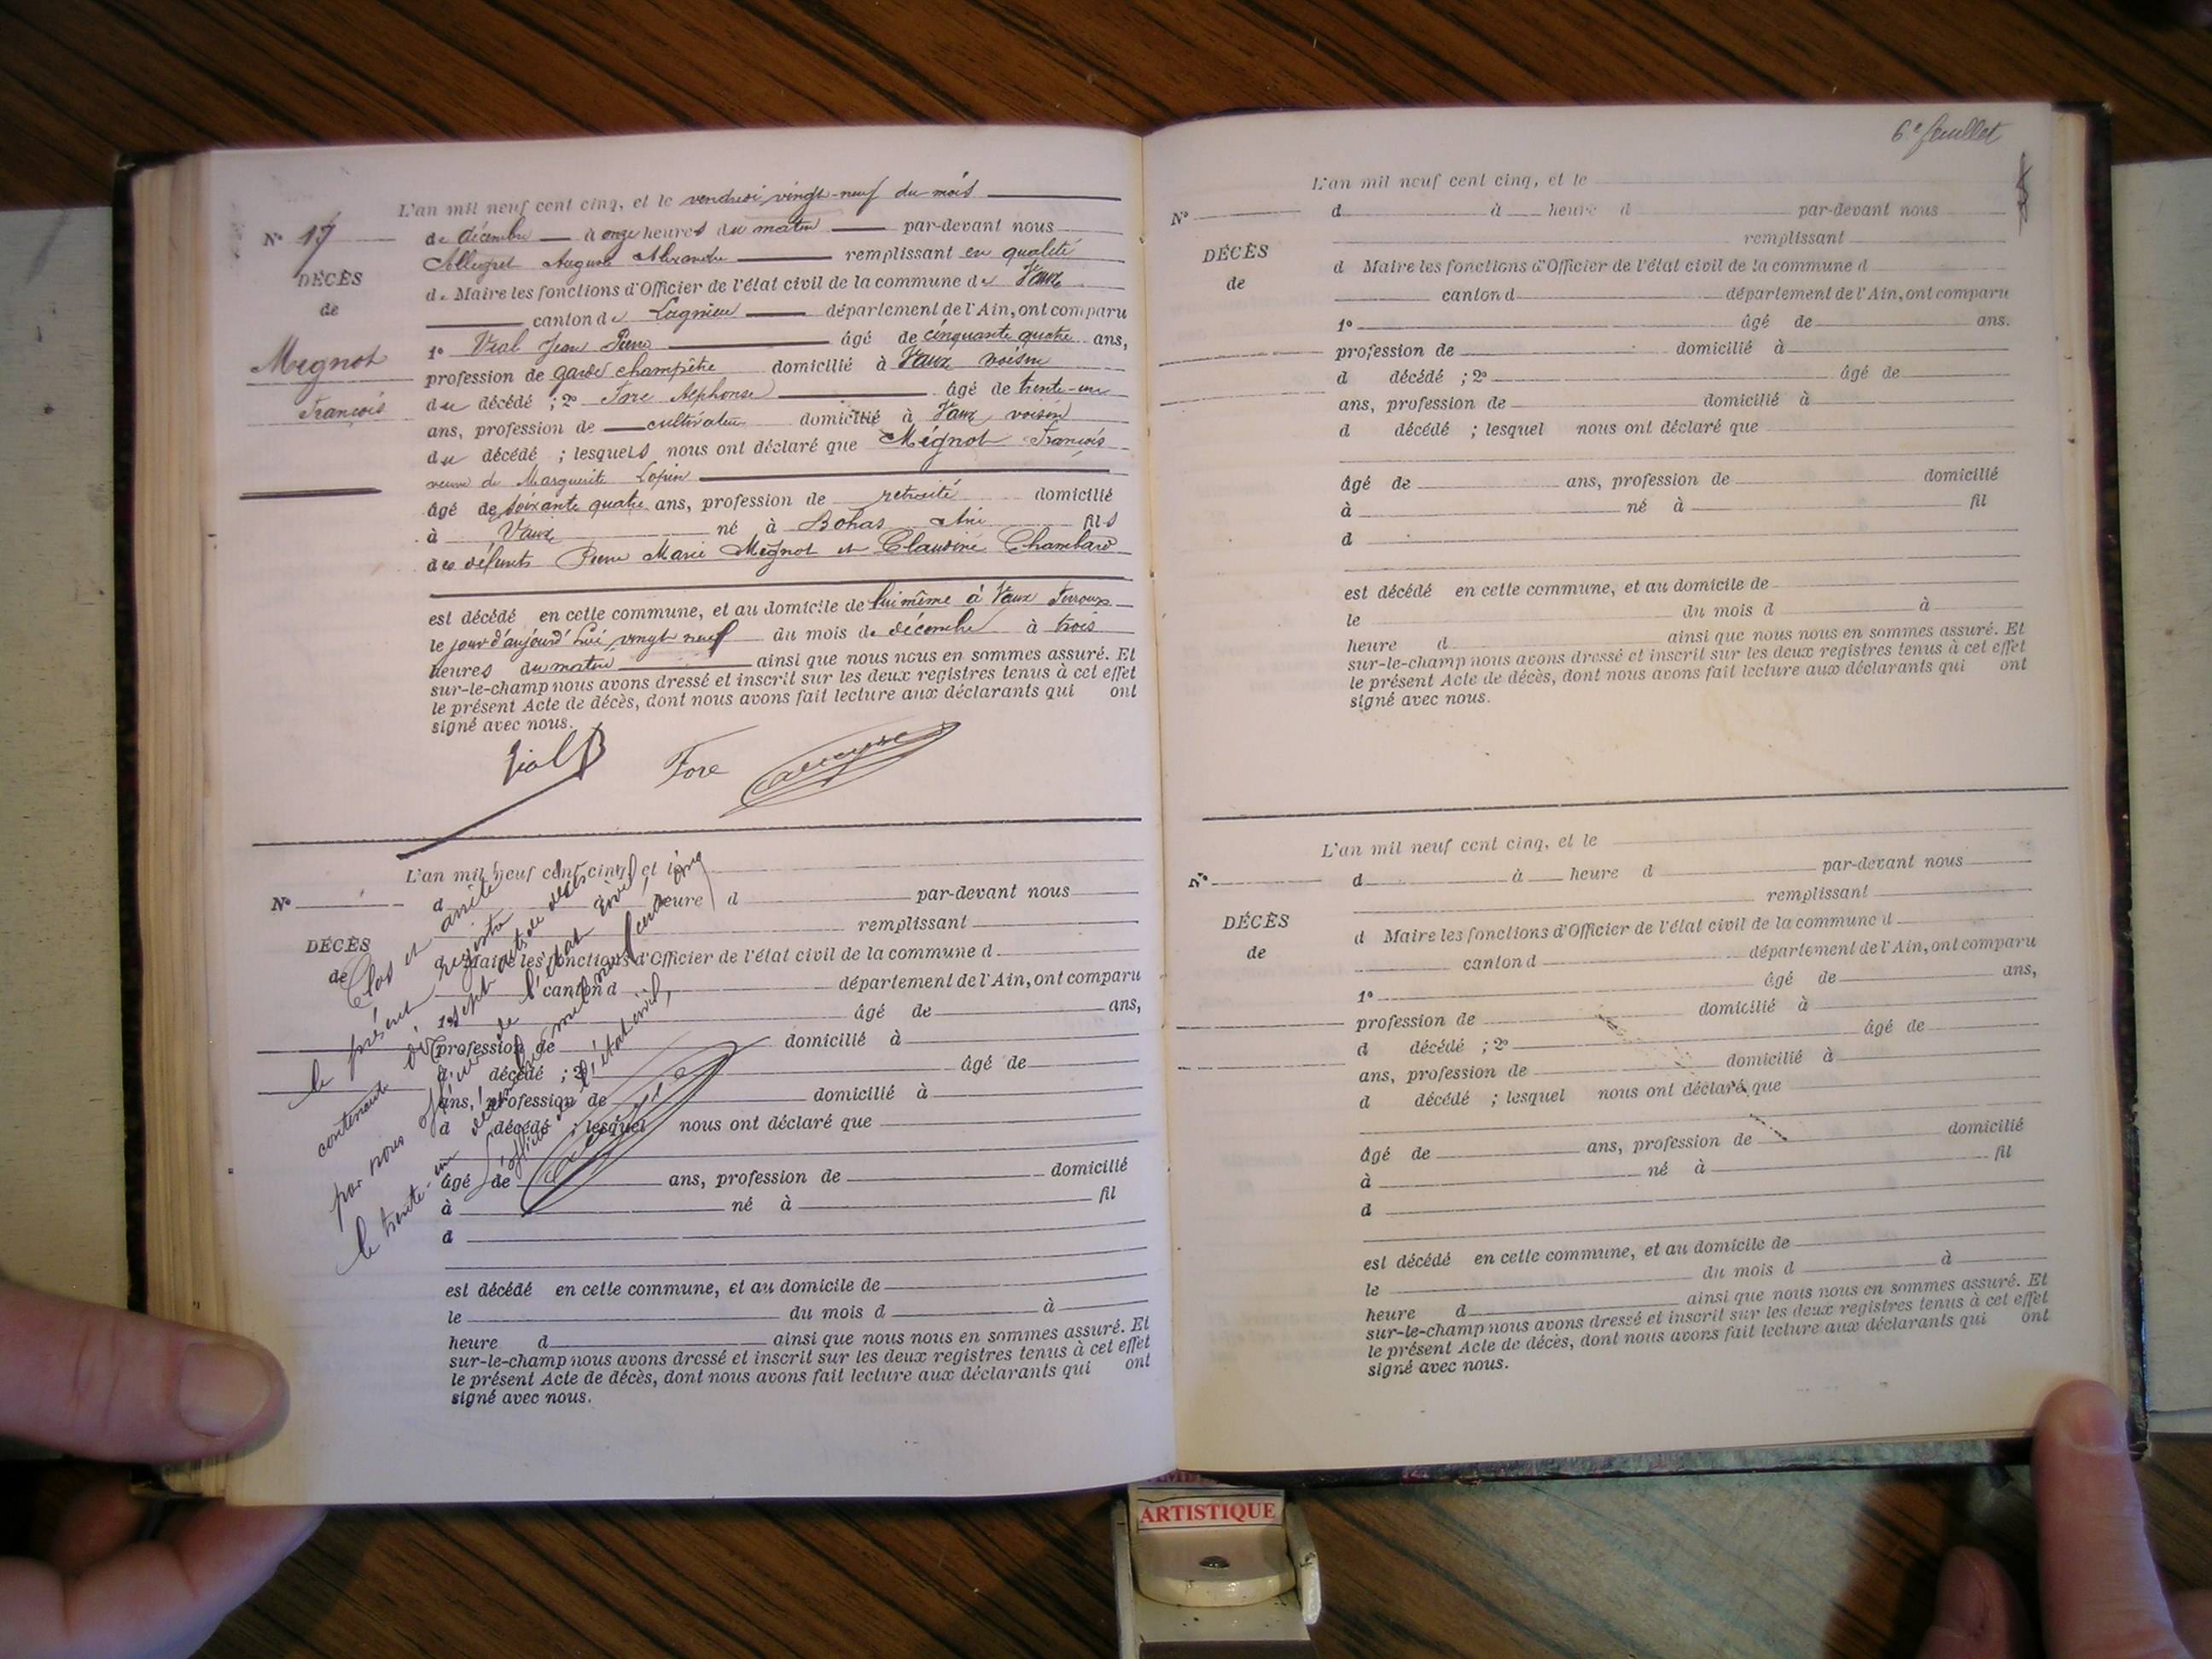 L'an mil neuf cent cinq, et le vendredi vingt-neuf du mois
N° 17
de décembre à onze heures du matin par-devant nous
Allegret Auguste Alexandre remplissant en qualité
DÉCÈS
de Maire les fonctions d'Officier de l'état civil de la commune de Vaux
de
canton de Lagnieu département de l'Ain, ont comparu
1° Vial Jean Pierre âgé de cinquante quatre ans,
Mignot
profession de garde champêtre domicilié à Vaux voisin
François
du décédé ; 2° Fore Alphonse âgé de trente-un
ans, profession de cultivateur domicilié à Vaux voisin
du décédé ; lesquels nous ont déclaré que Mignot François
de Marguerite
âgé de soixante quatre ans, profession de retraité domicilié
à Vaux né à Bohas Ain fils
des défunts Pierre Marie Mignot et Claudine Chambard
est décédé en cette commune, et au domicile de lui même à Vaux
le jour d'aujourd'hui, vingt neuf du mois de décembre à trois
heures du matin ainsi que nous nous en sommes assuré. Et
sur-le-champ nous avons dressé et inscrit sur les deux registres tenus à cet effet
le présent Acte de décès, dont nous avons fait lecture aux déclarants qui ont
signé avec nous.
Vial Fore
L'an mil neuf cent cinq, et le
N° d à heure d par-devant nous
remplissant
DÉCÈS
d Maire les fonctions d'Officier de l'état civil de la commune d
de
canton d département de l'Ain, ont comparu
1° âgé de ans,
profession de domicilié à
d décédé ; 2° âgé de
ans, profession de domicilié à
d décédé ; lesquel nous ont déclaré que
âgé de ans, profession de domicilié
à né à fil
d
est décédé en cette commune, et au domicile de
le du mois d à
heure d ainsi que nous nous en sommes assuré. Et
sur-le-champ nous avons dressé et inscrit sur les deux registres tenus à cet effet
le présent Acte de décès, dont nous avons fait lecture aux déclarants qui ont
signé avec nous.
Clos et arrêté
le présent registre
contenant dix sept actes de décès
par nous officier de l'état civil
le trente-un décembre mil neuf cent cinq
L'officier de l'état civil,
6e feuillet
L'an mil neuf cent cinq, et le
N° d à heure d par-devant nous
remplissant
DÉCÈS
d Maire les fonctions d'Officier de l'état civil de la commune d
de
canton d département de l'Ain, ont comparu
1° âgé de ans.
profession de domicilié à
d décédé ; 2° âgé de
ans, profession de domicilié à
d décédé ; lesquel nous ont déclaré que
âgé de ans, profession de domicilié
à né à fil
d
est décédé en cette commune, et au domicile de
le du mois d à
heure d ainsi que nous nous en sommes assuré. Et
sur-le-champ nous avons dressé et inscrit sur les deux registres tenus à cet effet
le présent Acte de décès, dont nous avons fait lecture aux déclarants qui ont
signé avec nous.
L'an mil neuf cent cinq, et le
N° d à heure d par-devant nous
remplissant
DÉCÈS
d Maire les fonctions d'Officier de l'état civil de la commune d
de
canton d département de l'Ain, ont comparu
1° âgé de ans,
profession de domicilié à
d décédé ; 2° âgé de
ans, profession de domicilié à
d décédé ; lesquel nous ont déclaré que
âgé de ans, profession de domicilié
à né à fil
d
est décédé en cette commune, et au domicile de
le du mois d à
heure d ainsi que nous nous en sommes assuré. Et
sur-le-champ nous avons dressé et inscrit sur les deux registres tenus à cet effet
le présent Acte de décès, dont nous avons fait lecture aux déclarants qui ont
signé avec nous.
ARTISTIQUE